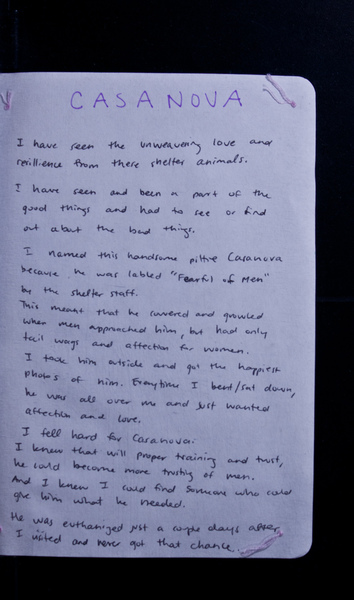 CASANOVA
I have seen the unwavering love and
resillience from these shelter animals.
I have seen and been a part of the
good things and had to see or find
out about the bad things.
I named this handsome pittie Casanova
because he was labled "Fearful of Men"
by the shelter staff.
This meant that he cowered and growled
when men approached him, but had only
tail wags and affection for women.
I took him outside and got the happiest
photos of him. Everytime I bent/sat down,
he was all over me and just wanted
affection and love.
I fell hard for Casanova.
I knew that with proper training and trust,
he could become more trusting of men.
And I knew I could find someone who could
give him what he needed.
He was euthanized just a couple days after
I visited and never got that chance.